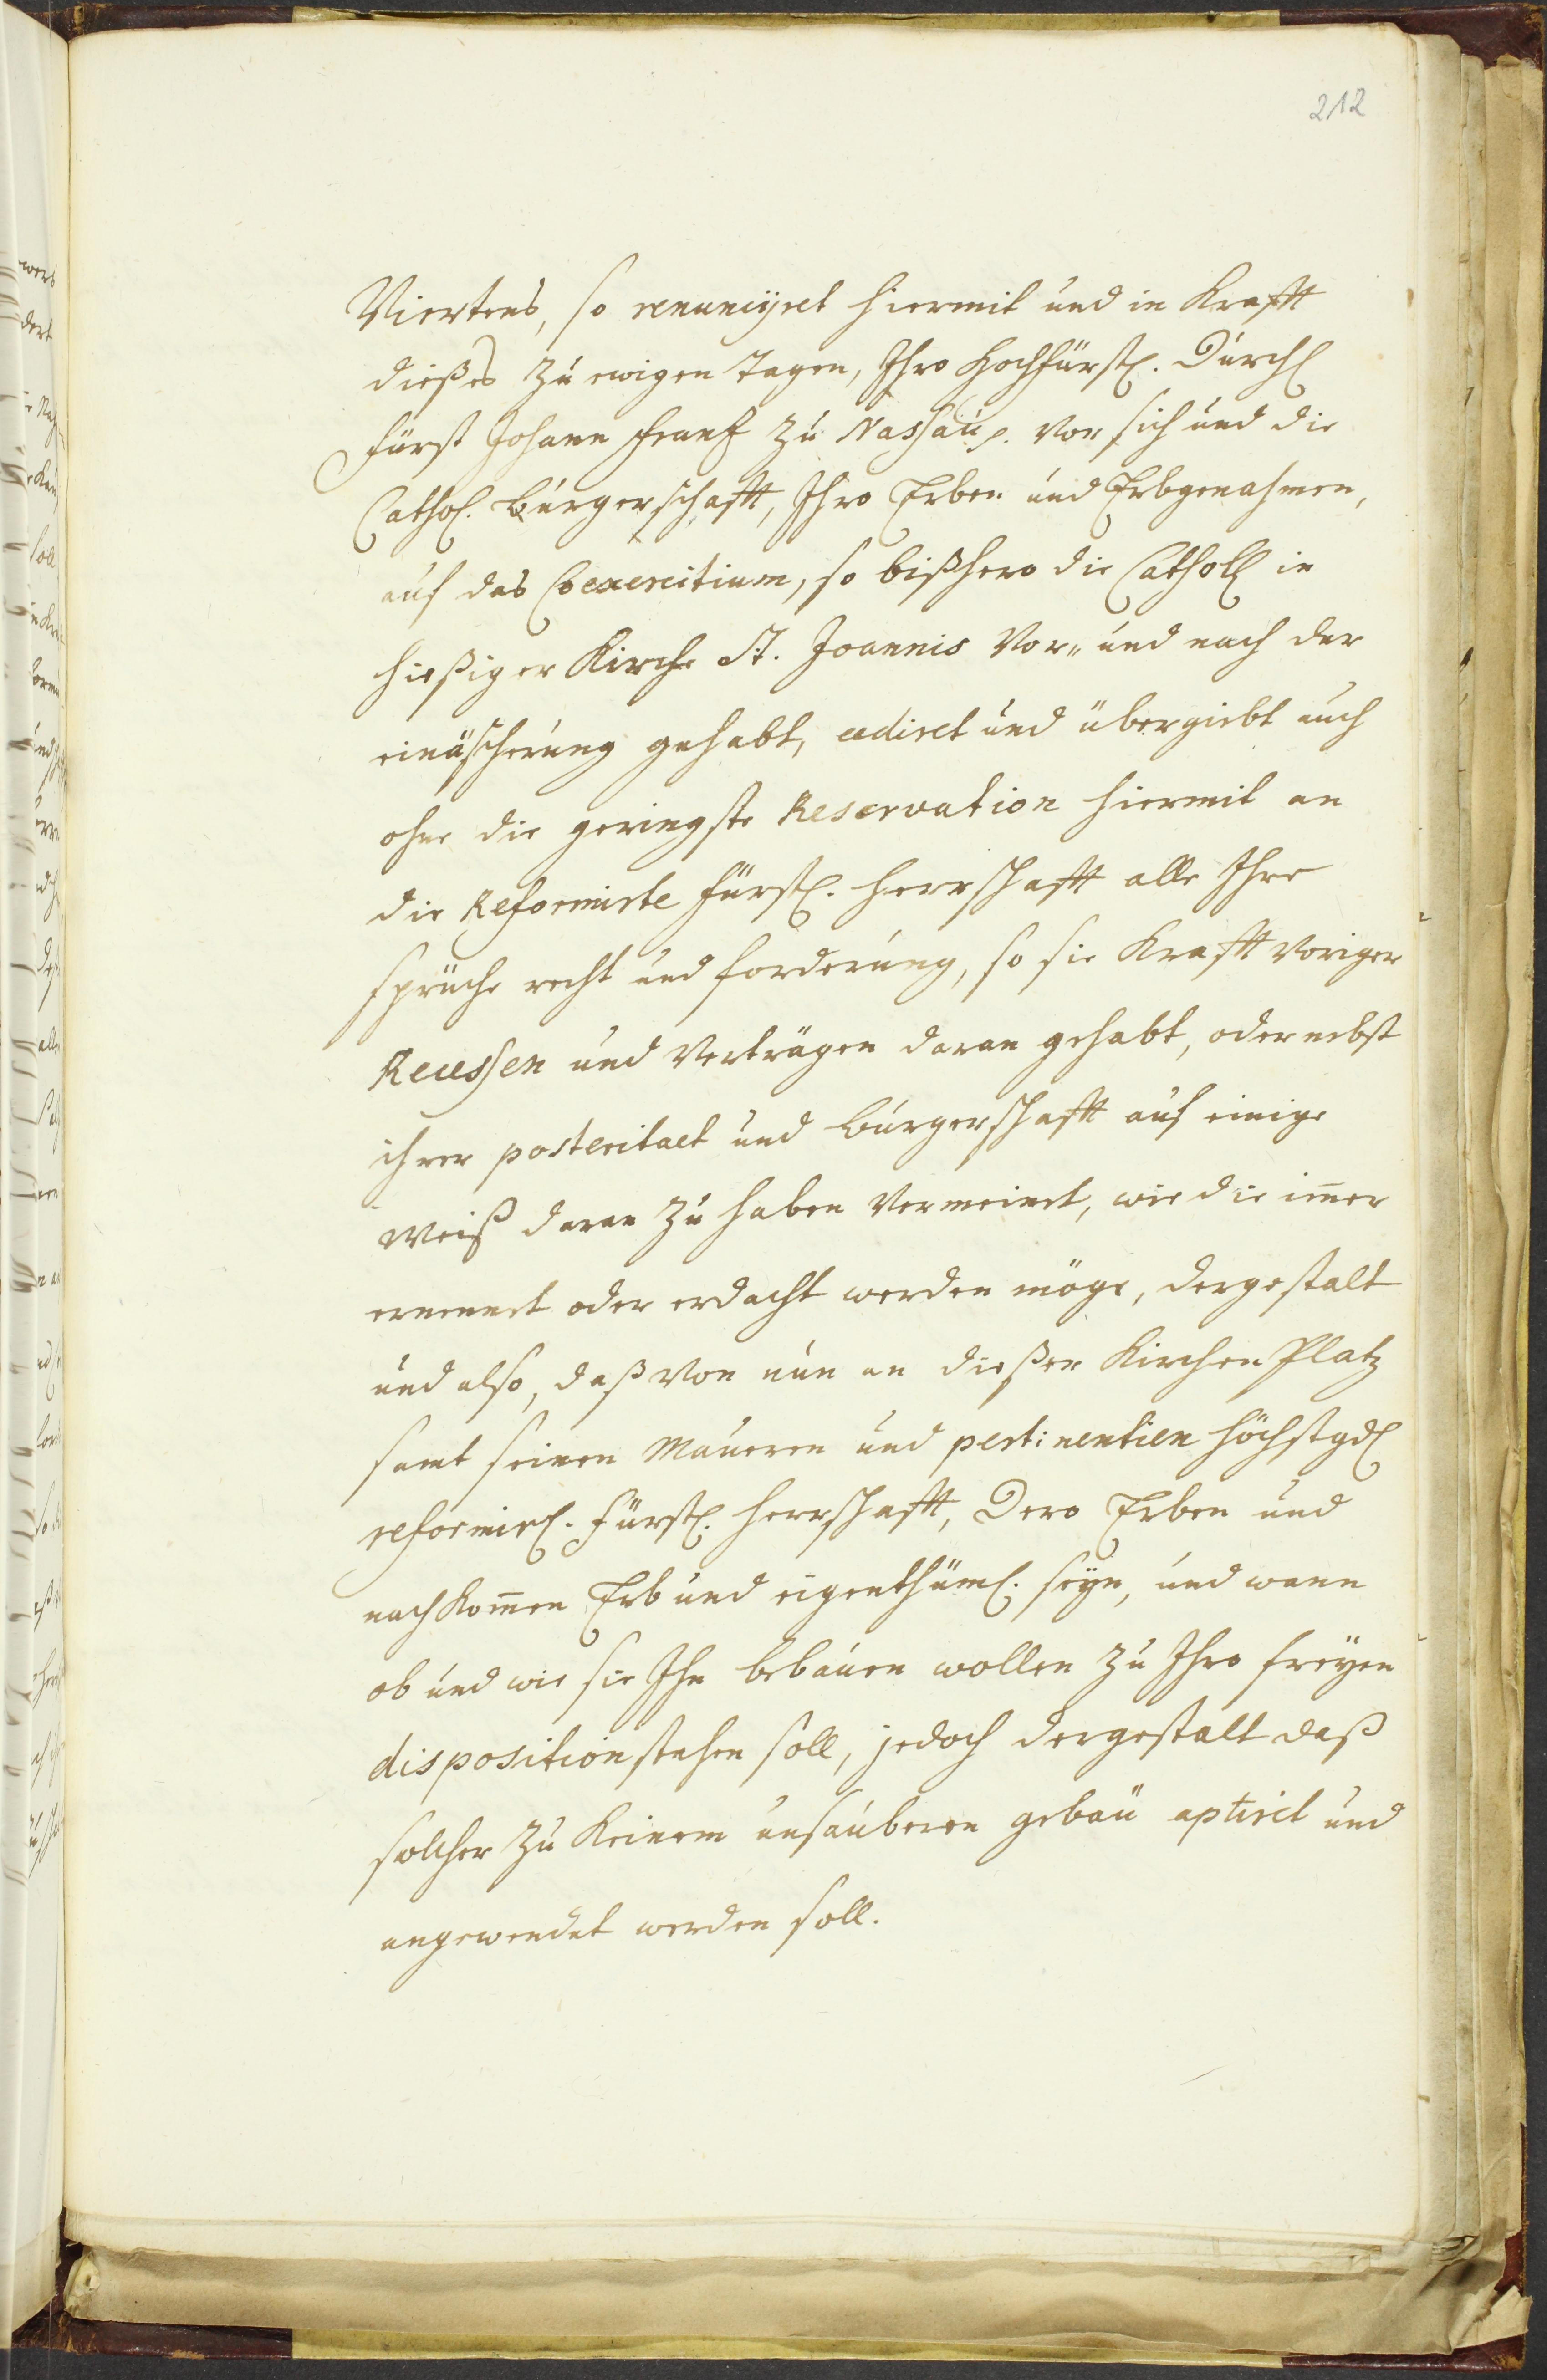 212
Viertens, so renuncyret hiermit und in Krafft
dießes zu ewigen Tagen, Ihro Hochfürstl. Durchl
Fürst Johann Frantz zu Nassau p. vor sich und die
Cathol. Bürgerschafft, Ihro Erben und Erbgenahmen,
auf das Coexercitium, so bißhero die Catholl in
hießiger Kirche St. Joannis vor„ und nach der
einäscherung gehabt, cediret und übergiebt auch
ohne die geringste Reservation hiermit an
die Reformirte Fürstl. Herrschafft alle Ihre
sprüche recht und forderung, so sie Krafft voriger
Recessen und Verträgen daran gehabt, oder nebst
ihrer posteritaet und bürgerschafft auf einige
Weiß daran zu haben vermeinet, wie die im̄er
ernennet oder erdacht werden möge, dergestalt
und also, daß von nun an dießer Kirchen Platz
samt seinen Maueren und pertinentien höchstgdl
reformirl. Fürstl. Herrschafft, Dero Erben und
nachkom̄en Erb und eigenthüml. seyn, und wann
ob und wie sie Ihn bebauen wollen zu Ihro freyen
disposition stehen soll, jedoch dergestalt daß
solcher zu keinem unsauberen gebäu aptiret und
angewendet werden soll.